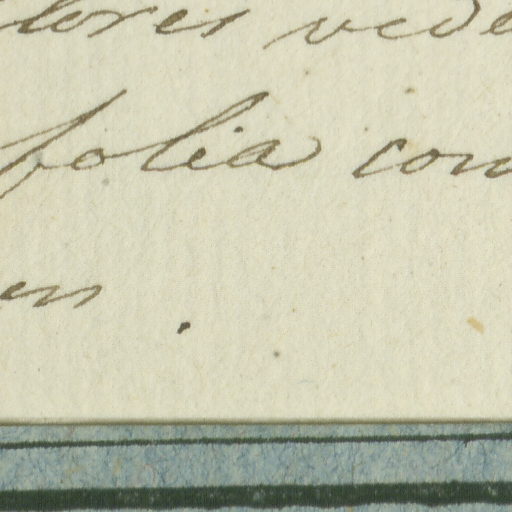 flores vide
folia com
en